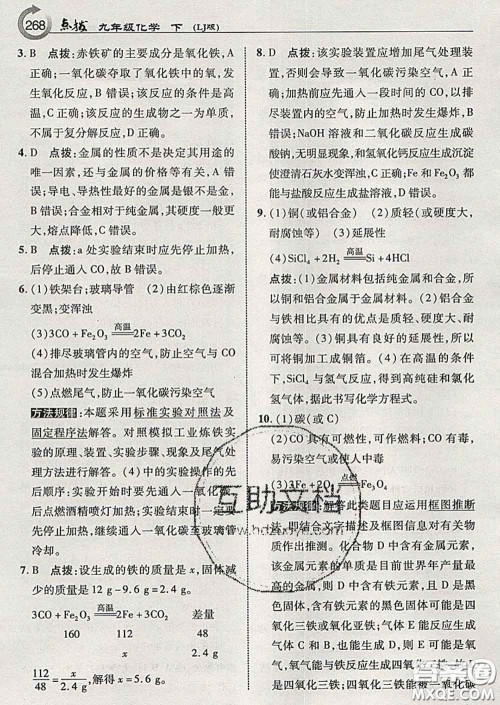 268 点拨 九年级化学 下 (LJ版)
3. B 点拨：赤铁矿的主要成分是氧化铁，A
正确；一氧化碳夺取了氧化铁中的氧，发
生氧化反应，B 错误；该反应的条件是高
温，C 正确；该反应的生成物之一为单质，
不属于复分解反应，D 正确。
4. D 点拨：金属的性质不是决定其用途的
唯一因素，还与金属的价格等有关，A 错
误；导电、导热性最好的金属是银，B 错
误；合金与组成其的纯金属相比，硬度更
大，熔点降低，C 错误。
5. B 点拨：a 处实验结束时应先停止加热，
后停止通入 CO，故 B 错误。
6. (1)铁架台；玻璃导管 (2)由红棕色逐渐
变黑；变浑浊
(3)3CO+Fe₂O₃ 高温 2Fe+3CO₂
(4)排尽玻璃管内的空气，防止空气与 CO
混合受热发生爆炸
(5)点燃尾气，防止一氧化碳污染空气
方法规律：本题采用标准实验对照法及
固定程序法解答。对照模拟工业炼铁实
验的原理、装置、现象、操作顺序及尾气处
理解答前面问题。(4)中实验的操作先后
顺序：实验开始时先通入一氧化碳，后
点燃酒精喷灯加热；实验完毕，先停止
加热，继续通入一氧化碳直到玻璃管
冷却。
7. B 点拨：设生成的铁的质量是 x，固体减
少的质量是 12 g-9.6 g=2.4 g。
3CO+Fe₂O₃ 高温 2Fe+3CO₂ 差量
160 112 48
x 2.4 g
112/48=x/2.4 g 解得 x=5.6 g。
8. D 点拨：该实验装置应增加尾气处理装
置，否则一氧化碳污染空气，A 正确；
加热前应先通入一段时间的 CO，以排
尽装置内的空气，防止加热时发生爆炸，
B 正确；NaOH 溶液和二氧化碳反应生成碳
酸钠，无明显现象，和氢氧化钙反应生成沉淀
使澄清石灰水变浑浊，C 正确；Fe 和 Fe₂O₃ 都
能与盐酸反应生成盐溶液，D 错误。
9. (1)铜(或铝合金) (2)质轻(或硬度大，
耐腐蚀等) (3)延展性
(4)SiCl₄+2H₂ 高温 Si+4HCl
点拨：(1)金属材料包括纯金属和合金，所
以铜和铝合金属于金属材料。(2)铝合金
与铁相比具有质轻、硬度大、耐腐蚀等优
良性能。(3)铜具有良好的延展性，所以能
将铜制印刷电路加工成铜箔。(4)在高温的条件
下，四氯化硅与氢气反应生成高纯硅和氯化
氢气体，据此书写化学方程式。
10. (1)碳(或 C)
(2)CO 具有可燃性，点燃时能燃烧，可作燃料；
CO 有毒，可污染空气或使人中毒
(3)3Fe+2O₂ 点燃 Fe₃O₄
方法规律：解答此类题目应运用框图推断
法，即结合文字描述及框图信息对有关问题
作出推测。化合物 D 中含有金属元素，该
金属元素是目前世界年产量最高的金属
元素，则 D 中含有铁元素，而 D 是一种黑
色固体，含有铁元素的黑色固体有
四氧化三铁或氧化亚铁，由于铁在氧气中
点燃，能生成 D，所以 D 是四氧化三铁，则
A、B 也能反应生成四氧化三铁，